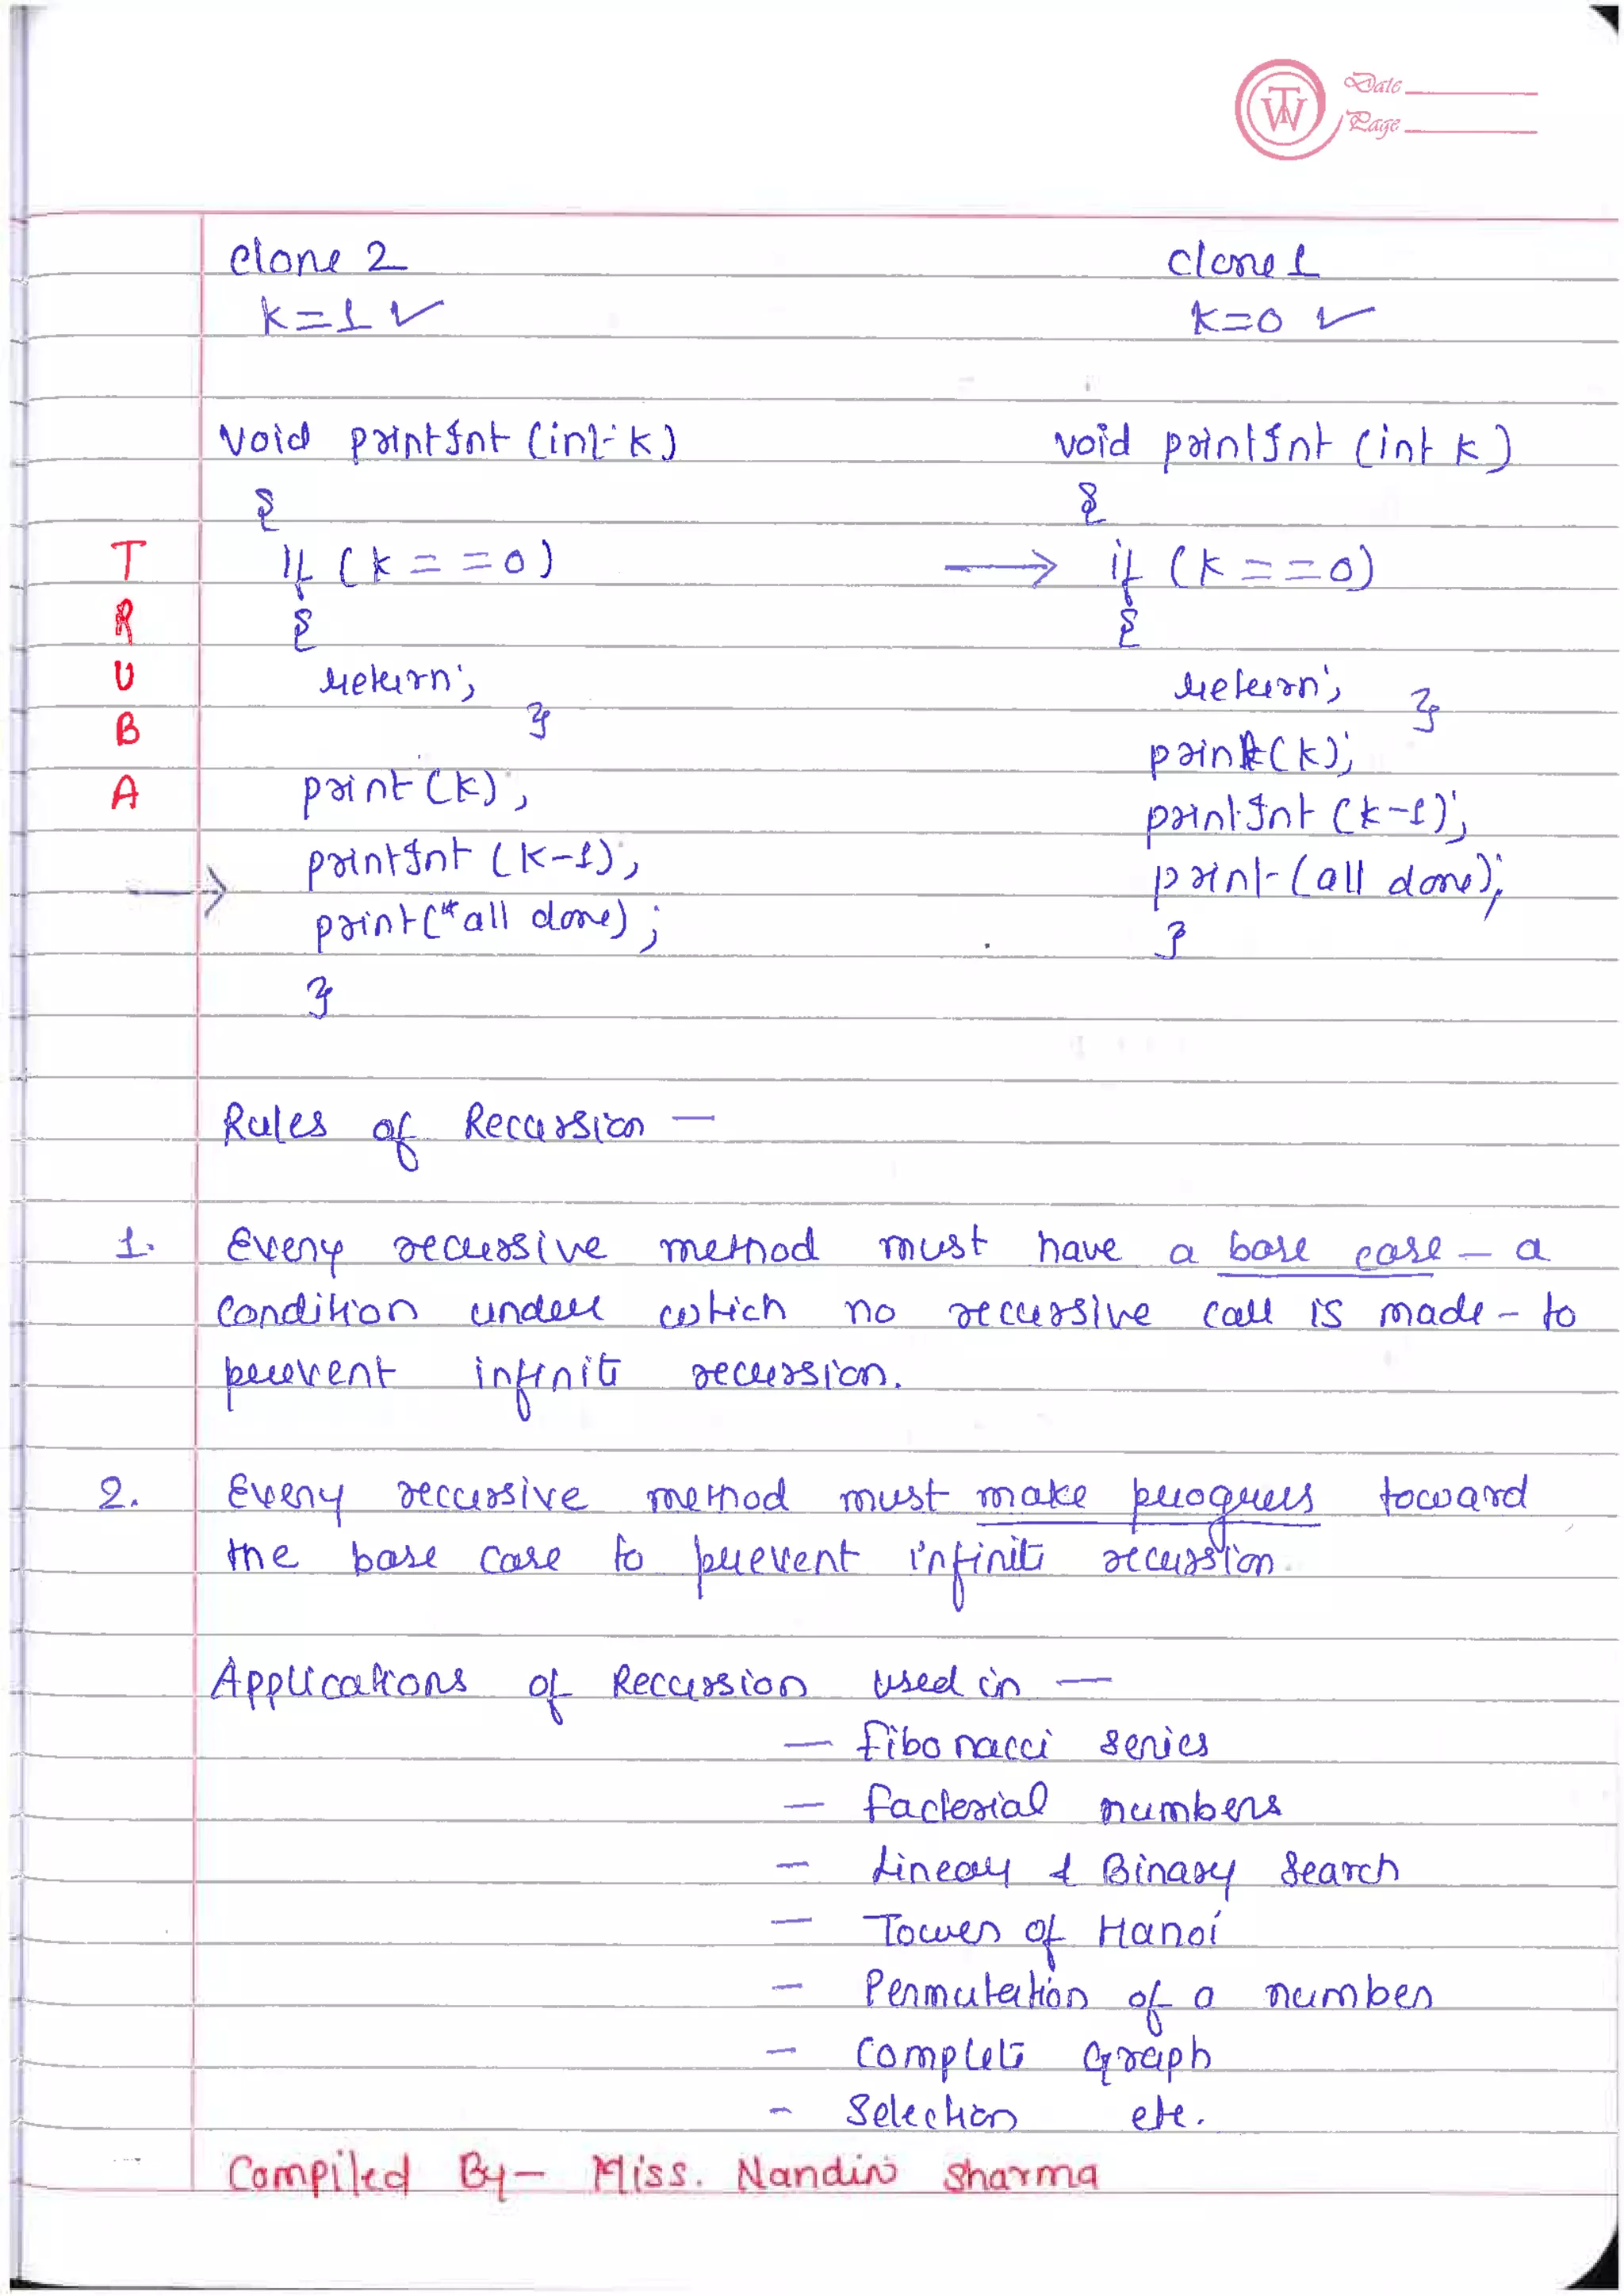 Date
Page
TW
clone 2
k=1 ✓
void printInt (int k)
{
if (k = = 0)
{
return;
}
print (k);
printInt (k-1);
→
print("all done);
}
clone 1
k=0 ✓
void printInt (int k)
{
→ if (k = = 0)
{
return; }
print(k);
printInt (k-1);
print (all done);
}
T
R
U
B
A
Rules of Recursion —
1. Every recursive method must have a base case — a
condition under which no recursive call is made - to
prevent infinite recursion.
2. Every recursive method must make progress toward
the base case to prevent infinite recursion.
Applications of Recursion used in —
— Fibonacci series
— Factorial numbers
— Linear & Binary Search
— Tower of Hanoi
— Permutation of a number
— Complete Graph
- Selection etc.
Compiled By— Miss. Nandini Sharma